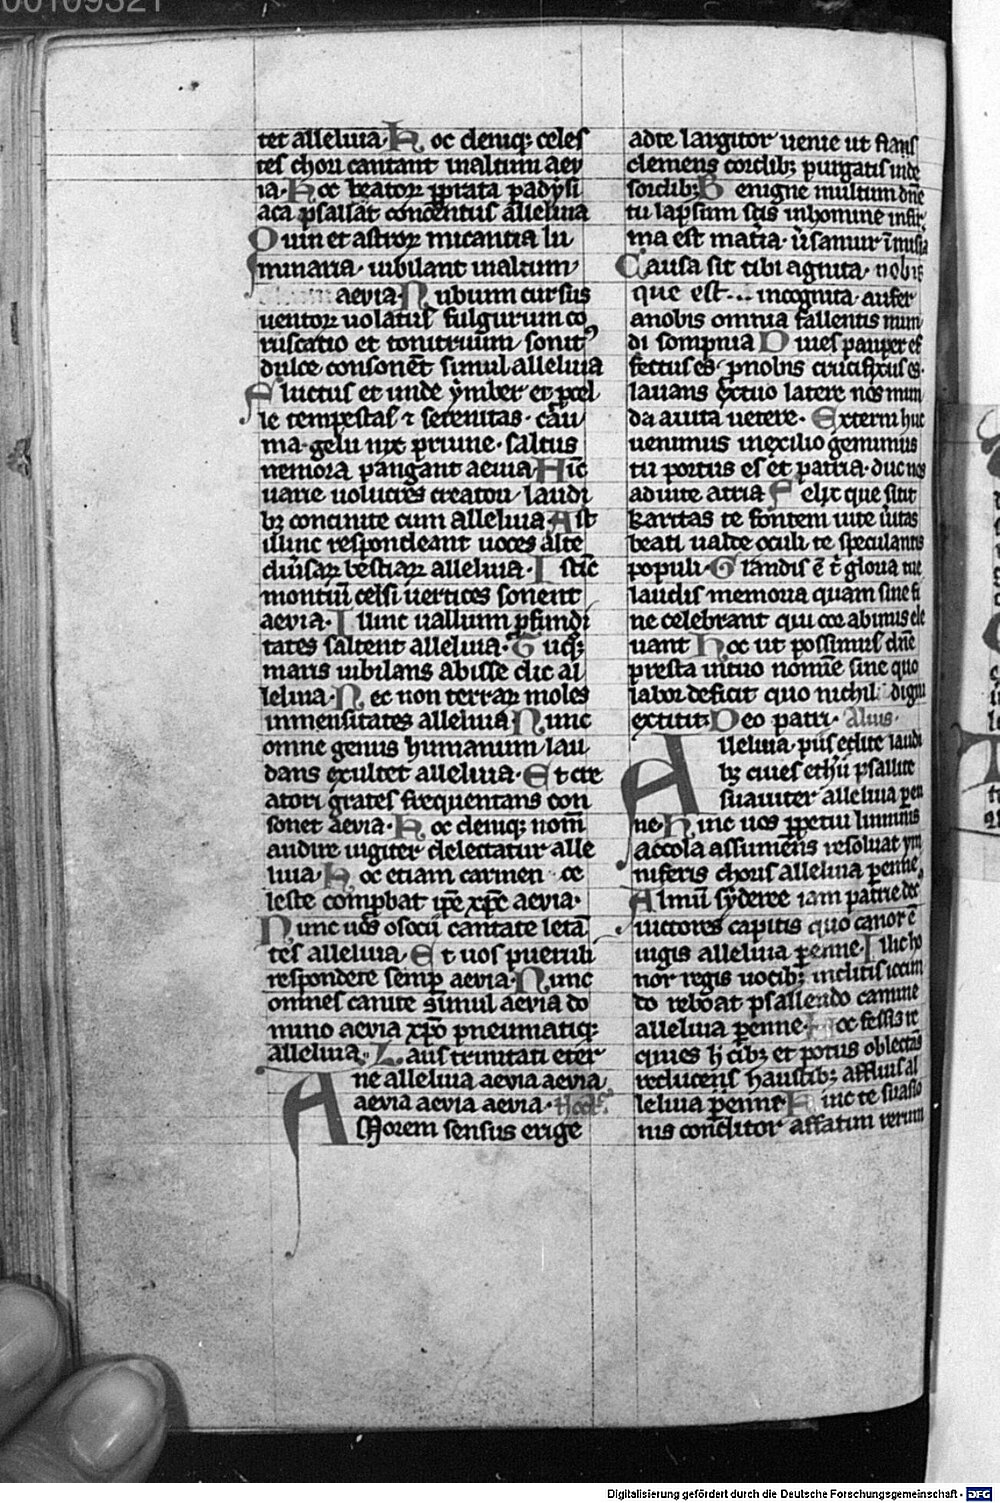 tet alleluia. Hoc deniq; celes
tes chori cantant inaltum aev
ia. Hoc beatoꝝ ꝑ prata padysi
aca psallat concentus alleluia
Quin et astroꝝ micantia lu
minaria. iubilant inaltum
aevia. Nubium cursus
uentoꝝ uolatus fulgurum co
ruscatio et tonitruum sonitꝰ
dulce consonent simul alleluia
Fluctus et unde ymber et pcel
le tempestas ⁊ serenitas. cau
ma. gelu nix pruine. saltus
nemora pangant aeuia. Hic
uarie uolucres creatori laudi
bꝫ concinite cum alleluia. Ast
illinc respondeant uoces alte
diūsaꝝ bestiaꝝ alleluia. Istic
montiū celsi uertices sonent
aevia. Illinc uallium ꝓfundi
tates saltent alleluia. Tuq;
maris iubilans abisse dic al
leluia. Nec non terraꝝ moles
inmensitates alleluia. Nunc
omne genus humanum lau
dans exultet alleluia. Et cre
atori grates frequentans con
sonet aevia. Hoc deniq; nom̄
audire iugiter delectatur alle
luia. Hoc etiam carmen ce
leste comꝓbat ip̄e xp̄c aevia.
Nunc uos o socii cantate letā
tes alleluia. Et uos pueruli
respondete semp aevia. Nunc
omnes canite simul aevia do
mino aevia xp̄o pneumatiq;
alleluia. Laus trinitati eter
ne alleluia aevia aevia
aevia aevia aevia.
AMorem sensus erige
adte largitor uenie ut fians
clemens cordibꝫ purgatis inde
sordibꝫ. Benigne multum dn̄e
tu lapsum scis inhomine infir
ma est mat̄ia.
Causa sit tibi agnita. nobis
que est... incognita. aufer
anobis omnia fallentis mun
di sompnia Diues pauper ef
fectus es. pnobis crucifixus es.
lauans extuo latere nos mun
da auita uetere. Externi huc
uenimus inexilio gemimus
tu portus es et patria. duc nos
aduite atria Felix que sitit
karitas te fontem uite ūitas
beati ualde oculi te speculantis
populi. Grandis ē t̄ gloria tue
laudis memoria quam sine fi
ne celebrant qui cor abimis ele
uant Hoc ut possimus dn̄e
presta intuo nom̄e sine quo
labor deficit quo nichil dignū
extitit. Deo patri. Alius.
Alleluia. piis edite laudi
bꝫ ciues eth̄ii psallite
suauiter alleluia ꝑen
ne. Hinc uos ꝑpetui luminis
accola assumens resoluat ym
niferis choris alleluia ꝑenne
Almū sydereē iam patrie decꝰ
uictores capitis quo canor ē
iugis alleluia ꝑenne. Illic ho
nor regis uocibꝫ inclitis iocun
do reboat psallendo camine
alleluia ꝑenne. Hoc fessis re
quies h̄ cibꝫ et potus oblectās
reducens haustibꝫ affluis al
leluia ꝑenne. Hinc te suaso
nis conditor affatim rerum
Digitalisierung gefördert durch die Deutsche Forschungsgemeinschaft - DFG